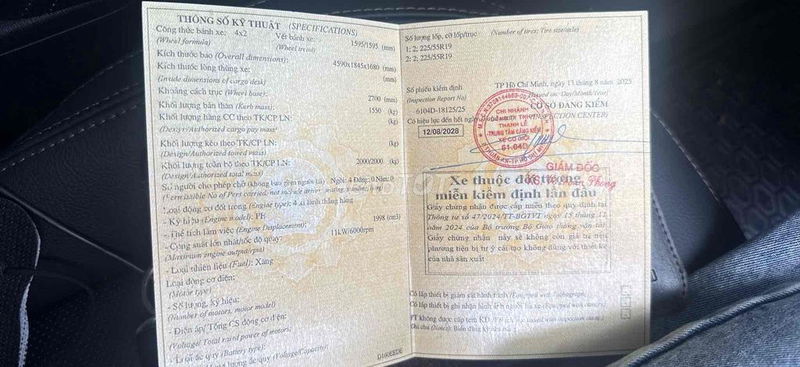 THÔNG SỐ KỸ THUẬT (SPECIFICATIONS)
Công thức bánh xe: 4x2 Vết bánh xe: 1595/1595 (mm)
(Wheel formula) (Wheel tread)
Kích thước bao (Overall dimensions): 4590x1845x1680 (mm)
Kích thước lòng thùng xe: (mm)
(Inside dimensions of cargo deck)
Khoảng cách trục (Wheel base): 2700 (mm)
Khối lượng bản thân (Kerb mass): 1550 (kg)
Khối lượng hàng CC theo TK/CP LN: (kg)
(Design/Authorized cargo pay mass)
Khối lượng kéo theo TK/CP LN: (kg)
(Design/Authorized towed mass)
Khối lượng toàn bộ theo TK/CP LN: 2000/2000 (kg)
(Design/Authorized total mass)
Số người cho phép chở
Loại động cơ đốt trong (Engine type): 4 xi lanh thẳng hàng
- Ký hiệu (Engine model): PE
- Thể tích làm việc (Engine Displacement): 1998 (cm3)
- Công suất lớn nhất/tốc độ quay: kW/6000rpm
(Maximum engine output/rpm)
- Loại nhiên liệu (Fuel): Xăng
Loại động cơ điện:
(Motor type)
- Số lượng, ký hiệu:
(Number of motors, motor model)
- Điện áp/Tổng CS động cơ điện:
(Voltage/Total rated power of motors)
- Loại ắc quy (Battery type):
Số lượng lốp, cỡ lốp/trục (Number of tires; Tire size/axle)
1: 2; 225/55R19
2: 2; 225/55R19
Số phiếu kiểm định TP Hồ Chí Minh, ngày 13 tháng 8 năm 2025
(Inspection Report No) (Issued on: Day/Month/Year)
6104D-18125/25 CƠ SỞ ĐĂNG KIỂM
Có hiệu lực đến hết ngày (INSPECTION CENTER)
12/08/2028
CHI NHÁNH
THANH LỄ
TRUNG TÂM ĐĂNG KIỂM
XE CƠ GIỚI
61-04D
GIÁM ĐỐC
Phong
Xe thuộc đối tượng
miễn kiểm định lần đầu
Giấy chứng nhận được cấp miễn theo quy định tại
Thông tư số 47/2024/TT-BGTVT ngày 15 tháng 11
năm 2024 của Bộ trưởng Bộ Giao thông vận tải
Giấy chứng nhận này sẽ không còn giá trị nếu
phương tiện bị tự ý cải tạo không đúng với thiết kế
của nhà sản xuất
Có lắp thiết bị giám sát hành trình (Equipped with Tachograph)
Có lắp thiết bị ghi nhận hình ảnh người lái xe (Equipped with camera)
PT không được cấp tem KĐ
Ghi chú (Notes): Biển đăng ký nền